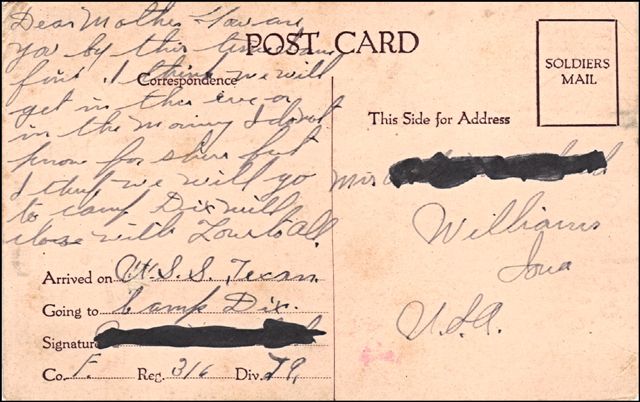 Dear Mother How are
you by this time
fine. I think we will
get in this eve or
in the morning I dont
know for sure but
I think we will go
to camp Dix will
close with Love to All.
POST CARD
Correspondence
SOLDIERS
MAIL
This Side for Address
Mrs
Williams
Iowa
U.S.A.
Arrived on U.S.S. Texan.
Going to Camp Dix.
Signature
Co. F. Reg. 316 Div. 79,